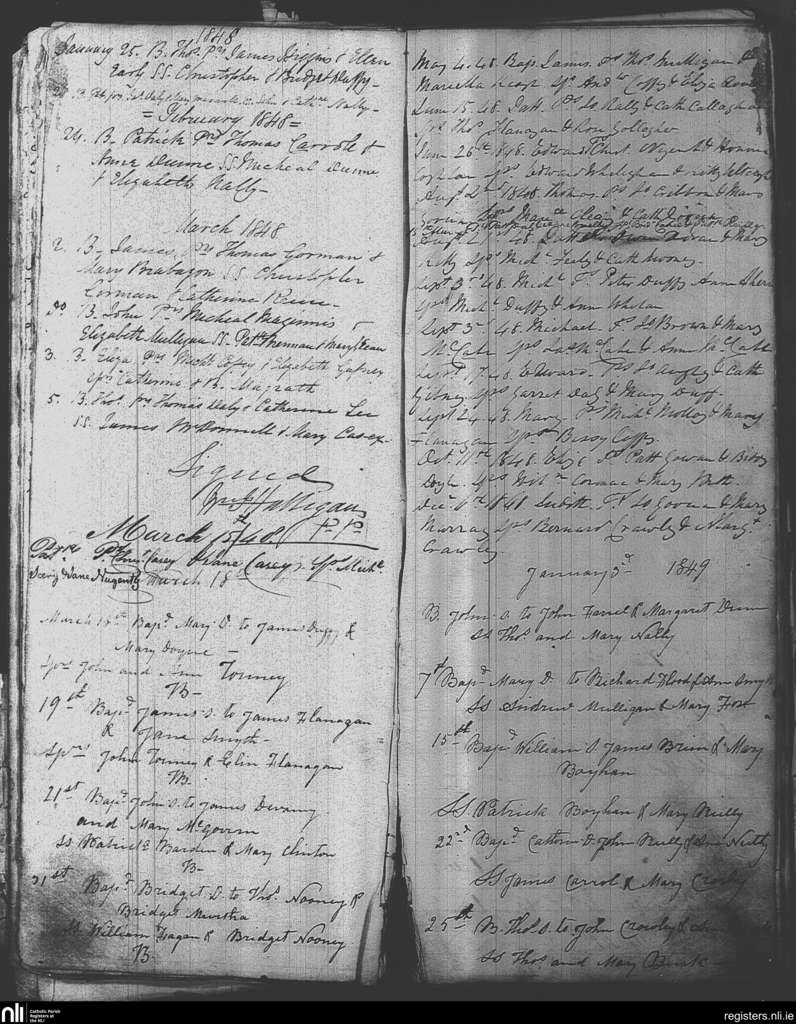 1848
January 25. B. Thos. Ps James Higgins & Ellen
Early SS. Christopher & Bridget Duffy-
= February 1848 =
24. B. Patrick Ps Thomas Carrole &
Anne Dunne SS Micheal Dunne
& Elizabeth Nally-
March 1848
2. B. James, Ps Thomas Gorman &
Mary Brabazon SS Christopher
Gorman & Catherine
B. John Ps Micheal Maginnis &
Elizabeth Mulligan SS.
3. B. Eliza Ps Michl Coffey & Elizabeth Gafney
Sps Catherine & B. Magrath
5. B. Thos. Ps Thomas Daly & Catherine Lee
SS. James McDonnell & Mary Casey
Signed
Halligan
March 15th 48. P.P.
Casey & Jane Casey. Sps Michl.
& Jane Nugent March 18th
March 18th Bapd Mary D. to James Duffy &
Mary Doyne -
Spos John and Ann Tormey
B-
19th Bapd James S. to James Flanagan
& Jane Smyth-
Sprs John Tormey & Elin Flanagan
B.
21st Bapd John S. to James Devany
and Mary McGovern
SS Patrick Barden & Mary Clinton
B-
31st Bapd Bridget D. to Thos. Nooney &
Bridget Murtha
SS William Fagan & Bridget Nooney
B-
May 4. 48. Bap. James. Ps Thos Mulligan &
Marcella Keogh Sps Andw Coffey & Eliza
June 15. 48. Patt. Ps Js Nally & Cath Callaghan
Sps Thos Flanagan & Rose Gollagher
June 26th 1848. Edward Christ. Nugent & Honour
Sps Edward Whelaghan & Kitty
Augt 2nd 1848. Thomas. Ps Js Gibson & Mary
Brown
Augt 48. & Mary
Kitty Sps Michl Healy & Cath Mooney.
Sept 3rd 48. Michl Ps Peter Duffy Ann
Sps Michl Duffy & Ann Whelan
Sept 3rd 48. Michael Ps Js Brown & Mary
McCabe Sps Jas McCabe & Anne McCabe
Sept 17. 48. Edward. Ps Js & Cath
Gibney Sps Garret Daly & Mary Duff.
Sept 24. 48. Mary. Ps Michl Molloy & Mary
Flanagan Sps Bessy Coffy.
Oct 11th 1848. Eliza Ps Patt Gowan & Biddy
Doyle. Sps Willm Cormac & Mary
Dec. 6th 1848 Judith Ps Js & Mary
Murray Sps Bernard Crawley & Margt
Crawley.
January 3rd 1849
B. John S. to John Farrel & Margaret Dunn
SS Thos. and Mary Nally
7th Bapd Mary D. to Richard Flood & Ann Smyth
SS Andrew Mulligan & Mary Fox
15th Bapd William S. James Brien & Mary
Boyhan
SS Patrick Boyhan & Mary Reilly
22nd Bapd Cathorin D. John Reilly & Ann Nally
SS James Carrol & Mary
25th B. Thos S. to John Crowly &
SS Thos. and Mary
nli
Catholic Parish
Registers at
the NLI
registers.nli.ie